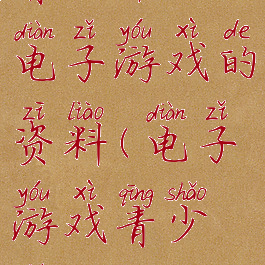 diàn zǐ yóu xì de
电子游戏的
zī liào ( diàn zǐ
资料(电子
yóu xì qīng shǎo
游戏青少